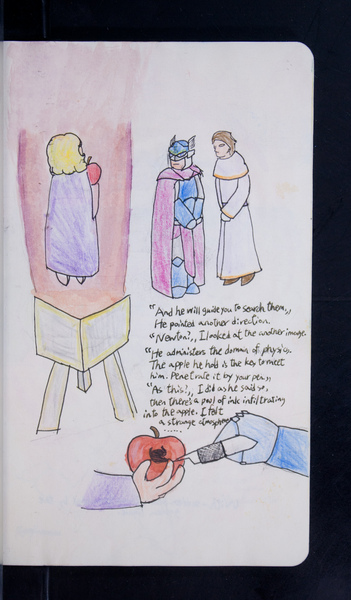 "And he will guide you to search them,,
He pointed another direction.
"Newton?,, I looked at the another image.
"He administers the domain of physics.
The apple he hold is the key to meet
him. Penetrate it by your pen,,
"As this?,, I did as he said so,
then there's a pool of ink infiltrating
into the apple. I felt
a strange atmosphere
......